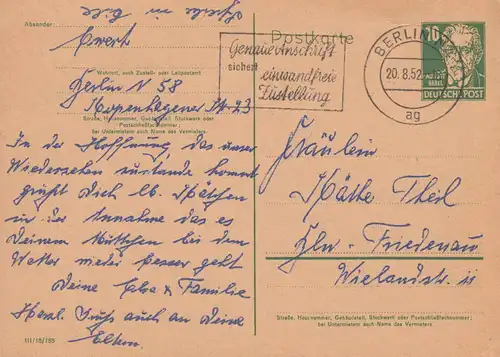 Schreibe in Eile
Absender:
Ewert
Wohnort, auch Zustell- oder Leitpostamt
Berlin N 58
Kopenhagener Str. 23
Straße, Hausnummer, Gebäudeteil, Stockwerk oder
Postschließfachnummer;
bei Untermietern auch Name des Vermieters.
In der Hoffnung, das unser
Wiedersehen zustande kommt
grüßt Dich lb. Käthchen
in der Annahme das es
Deinem Muttchen bei dem
Wetter wieder besser geht
Deine Elsa & Familie
Herzl. Gruß auch an Deine
Eltern.
III/18/185
Postkarte
Genaue Anschrift
sichert
einwandfreie
Zustellung
BERLIN
20.8.52
ag
20
AUGUST
BEBEL
DEUTSCHE POST
Fräulein
Käthe Theil
Bln.-Friedenau
Wielandstr. 11
Straße, Hausnummer, Gebäudeteil, Stockwerk oder Postschließfachnummer;
bei Untermietern auch Name des Vermieters